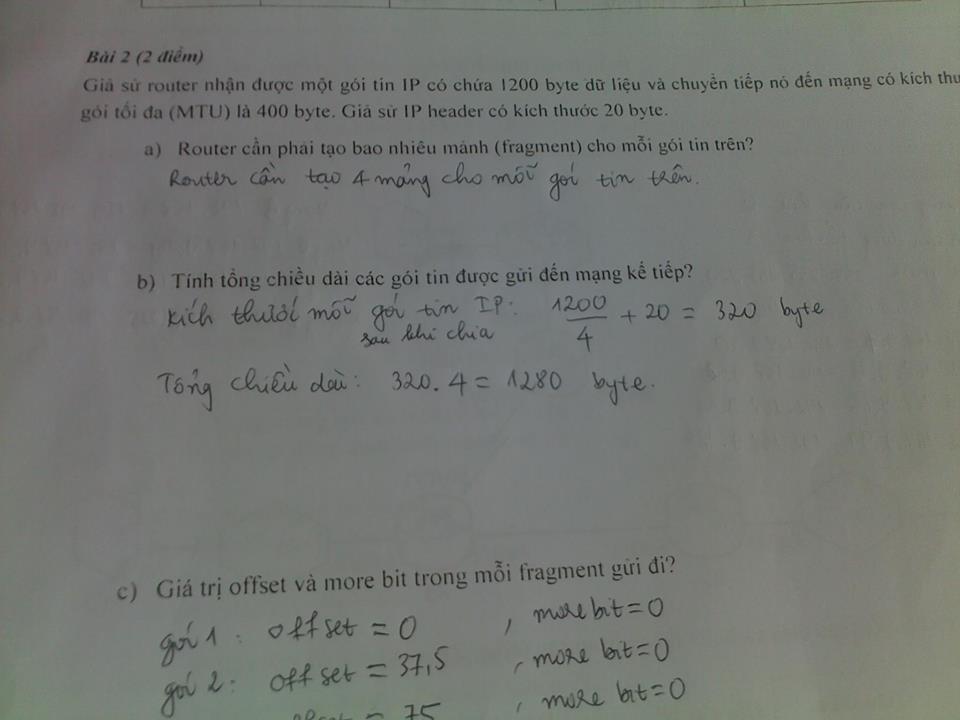 Bài 2 (2 điểm)
Giả sử router nhận được một gói tin IP có chứa 1200 byte dữ liệu và chuyển tiếp nó đến mạng có kích thư
gói tối đa (MTU) là 400 byte. Giả sử IP header có kích thước 20 byte.
a) Router cần phải tạo bao nhiêu mảnh (fragment) cho mỗi gói tin trên?
Router cần tạo 4 mảng cho mỗi gói tin trên.
b) Tính tổng chiều dài các gói tin được gửi đến mạng kế tiếp?
kích thướt mỗi gói tin IP: 1200/4 + 20 = 320 byte
sau khi chia
Tổng chiều dài: 320.4 = 1280 byte.
c) Giá trị offset và more bit trong mỗi fragment gửi đi?
gói 1: offset = 0 , more bit = 0
gói 2: offset = 37,5 , more bit = 0
offset = 75 , more bit = 0